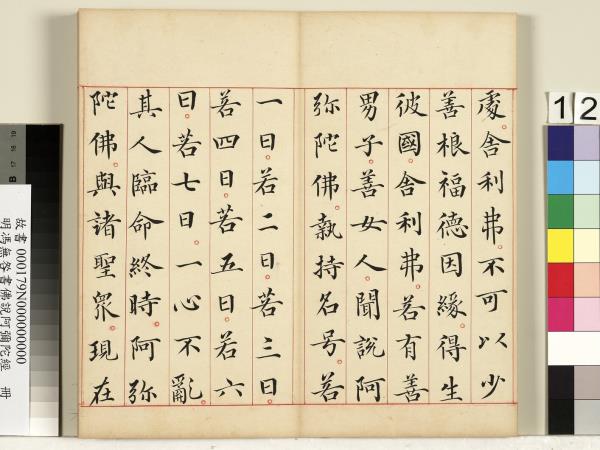 處舍利弗不可以少
善根福德因緣得生
彼國舍利弗若有善
男子善女人聞說阿
弥陀佛執持名号若
一日若二日若三日
若四日若五日若六
日若七日一心不亂
其人臨命終時阿弥
陀佛與諸聖眾現在
12
故書000179N000000000
明馮無咎書佛說阿彌陀經 冊